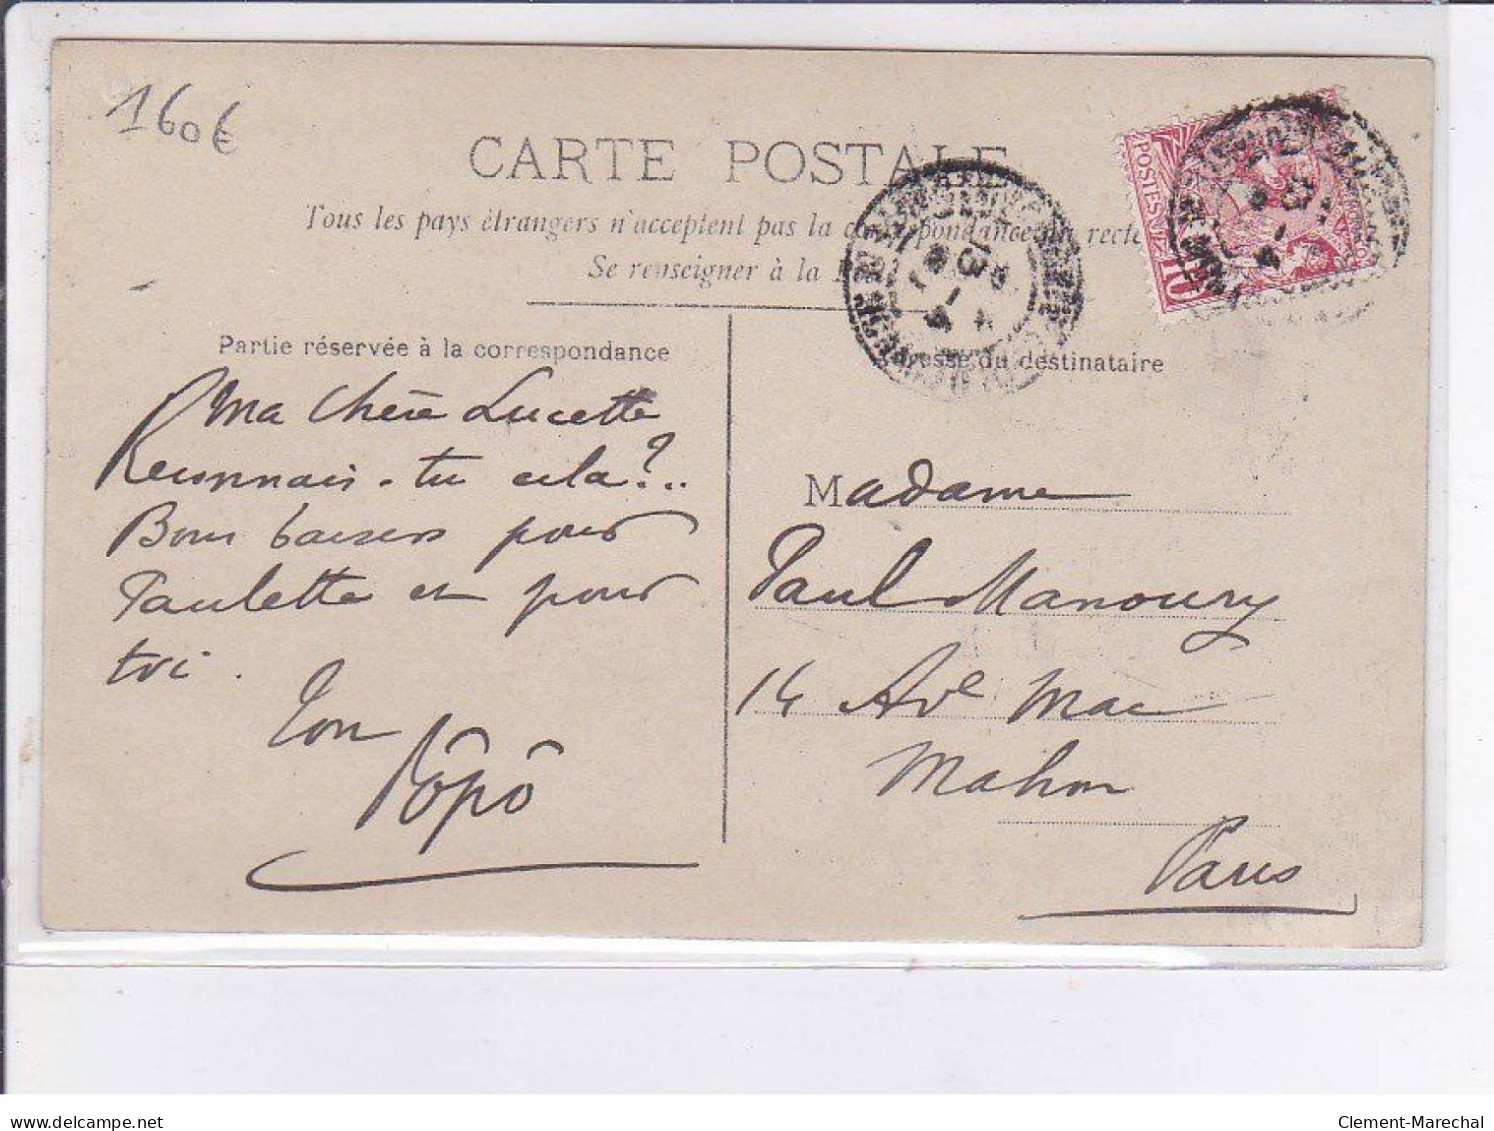 160€
CARTE POSTALE
Tous les pays étrangers n'acceptent pas la correspondance au recto
Se renseigner à la
Partie réservée à la correspondance
Ma chère Lucette
Reconnais-tu cela?..
Bons baisers pour
Paulette et pour
toi.
Ton
Pôpô
POSTES
10
Adresse du destinataire
Madame
Paul Manoury
14 Ave Mac
Mahon
Paris
Clement-Marechal
delcampe.net